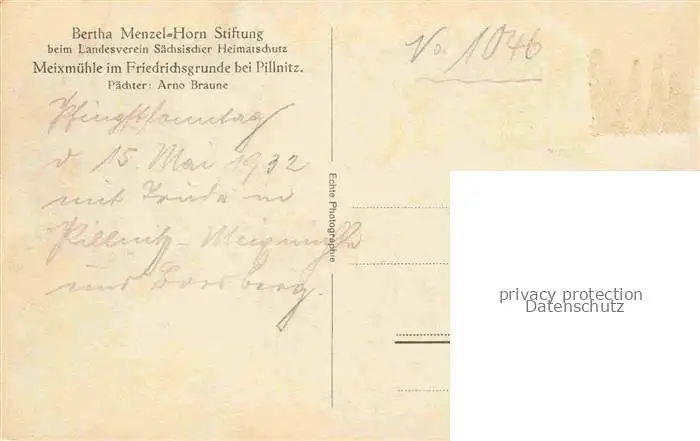 Bertha Menzel=Horn Stiftung
beim Landesverein Sächsischer Heimatschutz
Meixmühle im Friedrichsgrunde bei Pillnitz.
Pächter: Arno Braune
No. 1046
Pfingstsonntag
d 15. Mai 1932
mit Trude in
Pillnitz - Meixmühle
und Borsberg.
Echte Photographie
privacy protection
Datenschutz